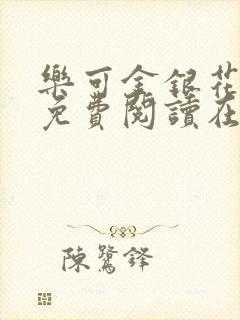 樂可金銀花
免費閱讀在
陳鷺鋒